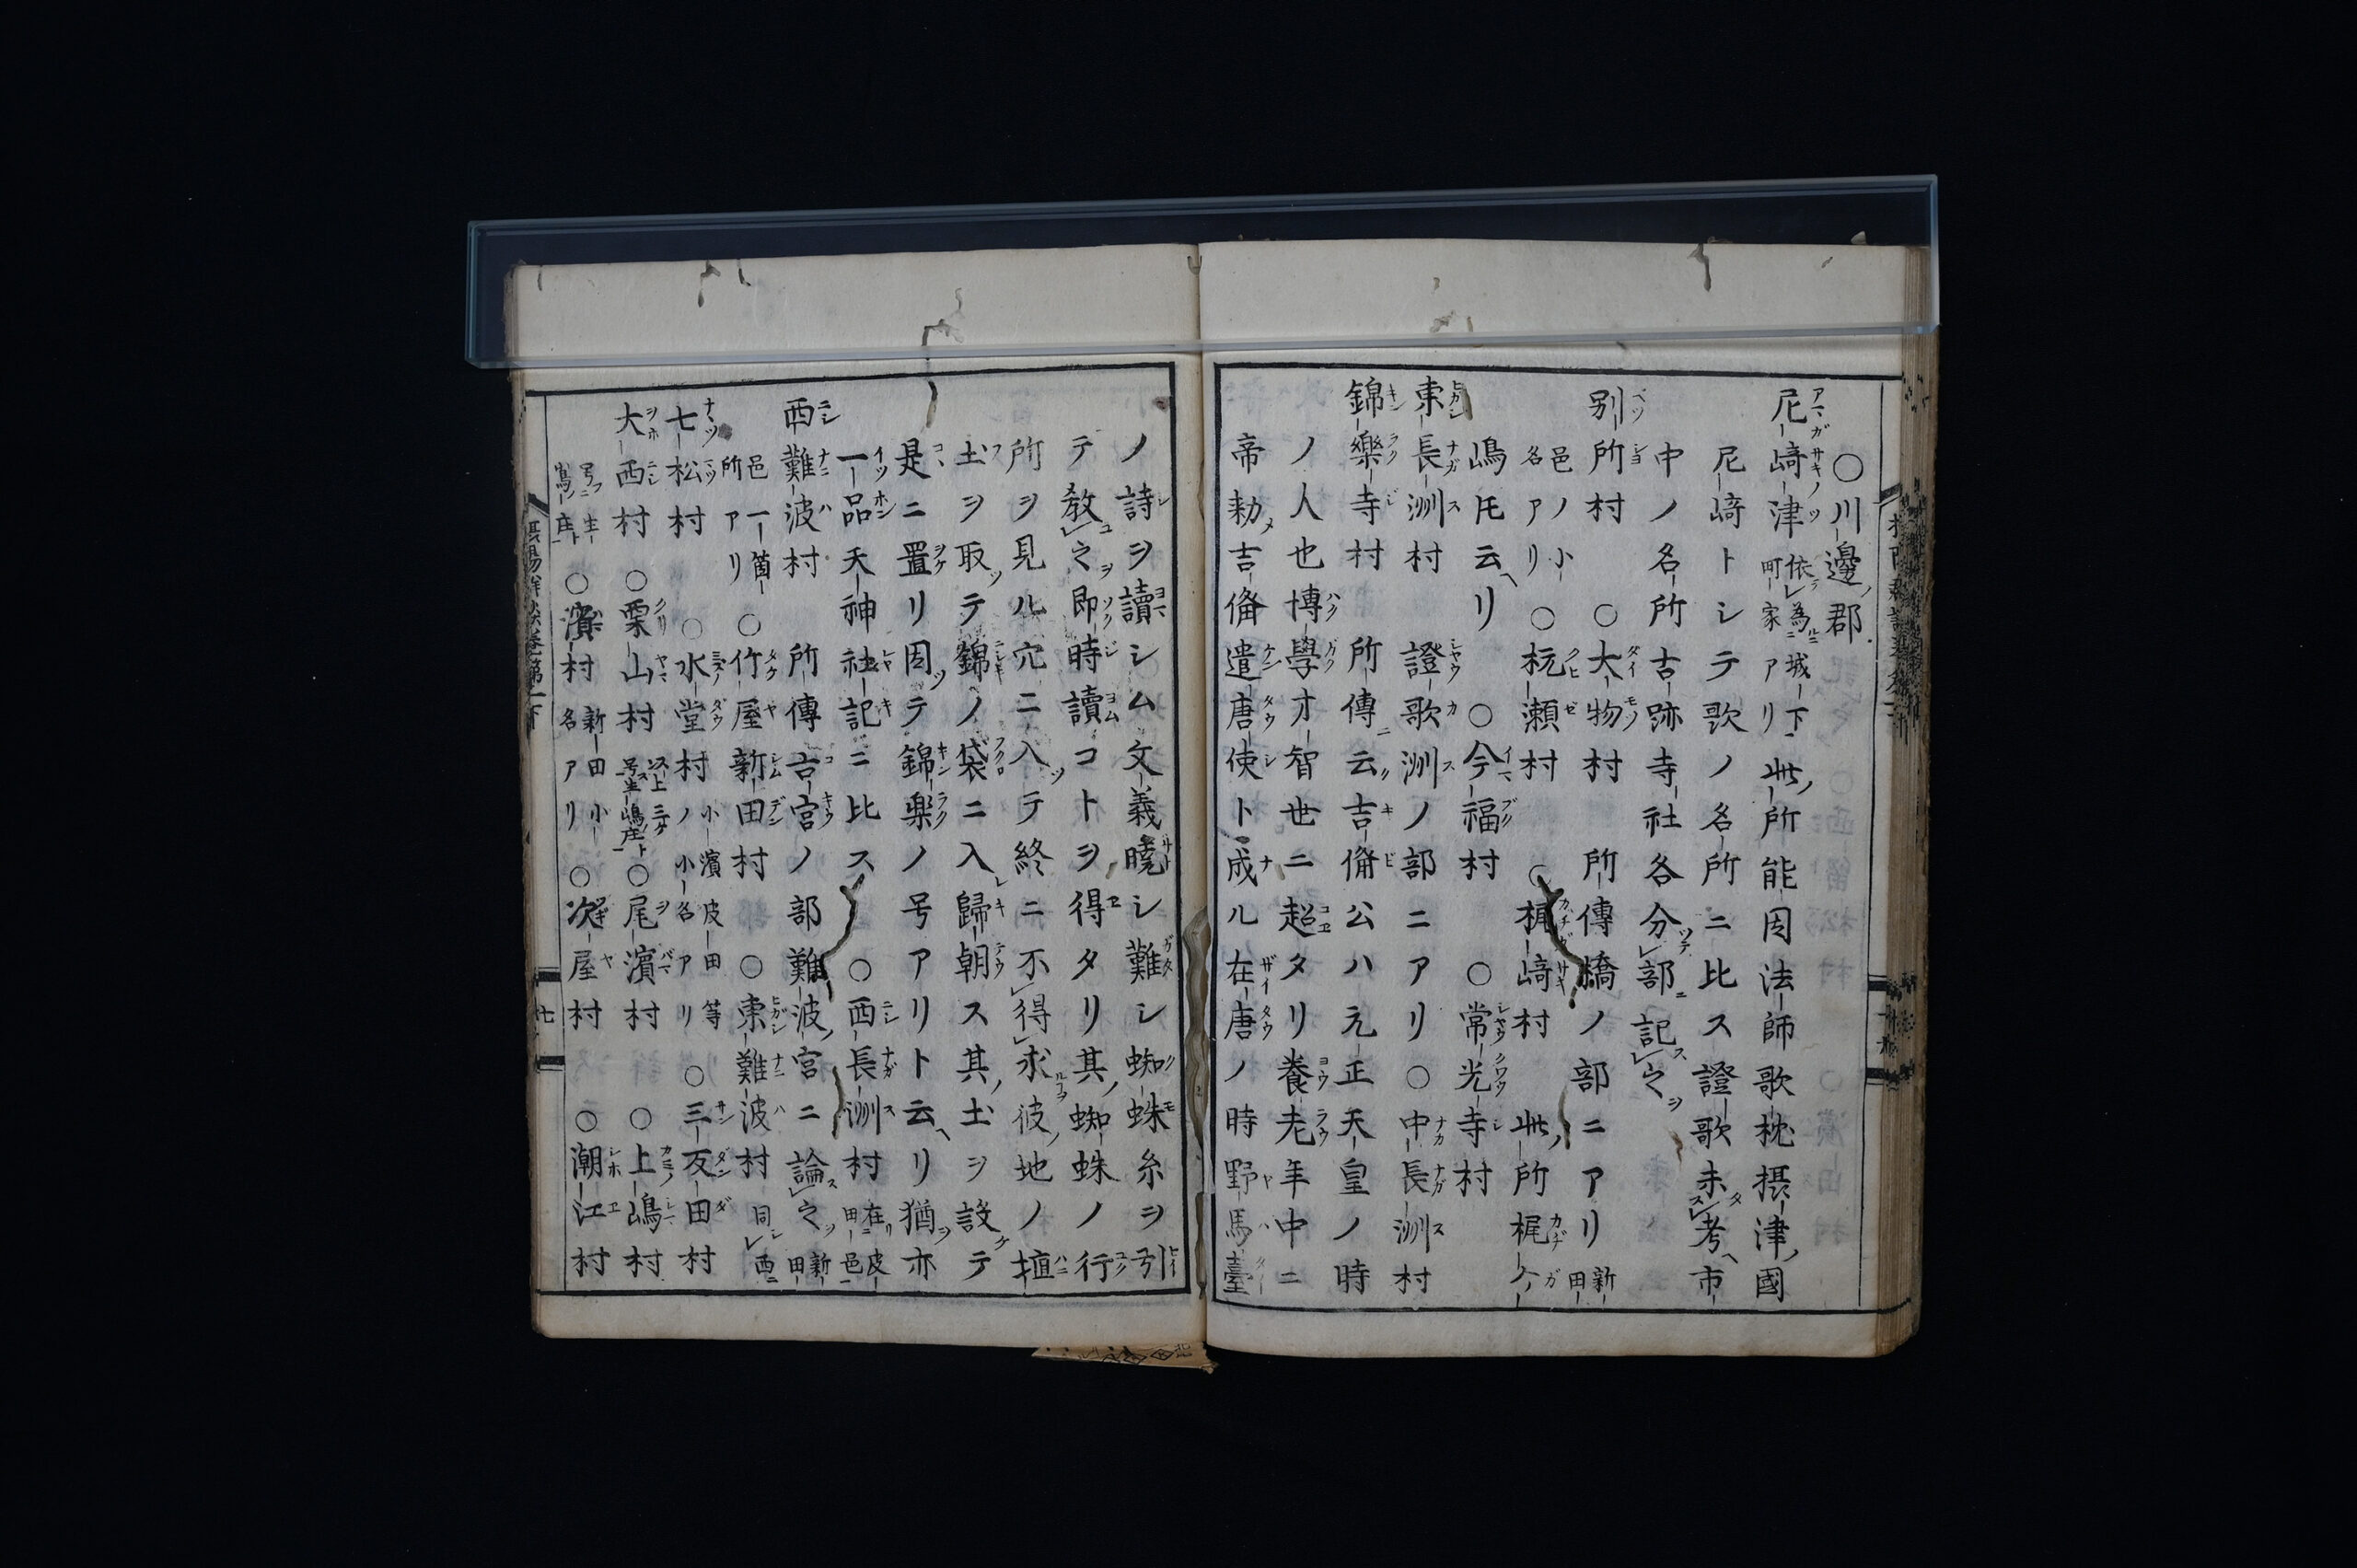 ○川邊郡
尼崎津依為城下町家アリ此所能因法師歌枕摂津國
尼崎トシテ歌ノ名所ニ比ス證歌未考市
中ノ名所古跡寺社各分部記之
別所村 ○大物村 所傳橋ノ部ニアリ新田
邑ノ小名アリ ○杭瀬村 ○梶崎村 此所梶ケ
嶋氏云リ ○今福村 ○常光寺村
東長洲村 證歌洲ノ部ニアリ ○中長洲村
錦樂寺村 所傳云吉備公ハ元正天皇ノ時
ノ人也博學才智世ニ超タリ養老年中ニ
帝勅吉備遣唐使ト成ル在唐ノ時野馬臺
ノ詩ヲ讀シム文義曉シ難シ蜘蛛糸ヲ引
テ教之即時讀コトヲ得タリ其蜘蛛ノ行
所ヲ見ル穴ニ入テ終ニ不得求彼地ノ埴
土ヲ取テ錦ノ袋ニ入歸朝ス其土ヲ設テ
是ニ置リ因テ錦楽ノ号アリト云リ猶亦
一品天神社記ニ比ス ○西長洲村在皮田邑
西難波村 所傳古宮ノ部難波宮ニ論之新田
邑一箇所アリ ○竹屋新田村 ○東難波村同西ニ
七松村 ○水堂村小濱皮田等ノ小名アリ ○三反田村
大西村 ○栗山村以上三ケ号生嶋庄ト ○尾濱村 ○上嶋村
号生嶋庄 ○濱村新田小名アリ ○次屋村 ○潮江村
七